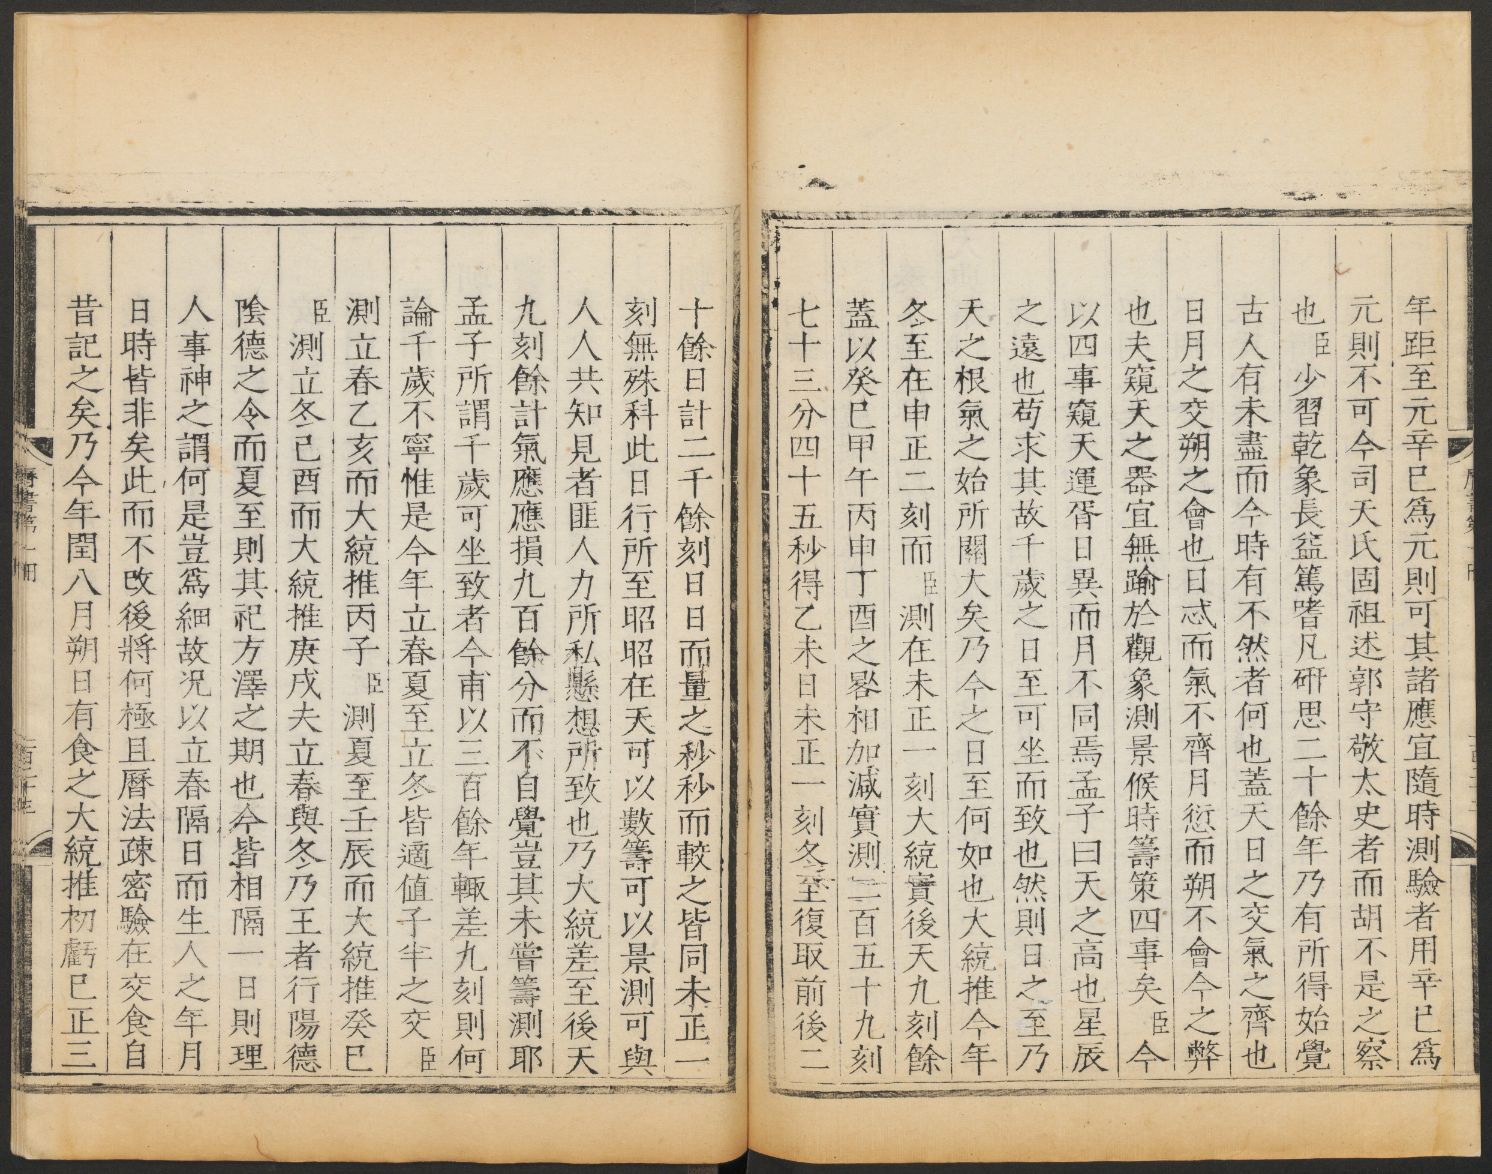 年距至元辛巳爲元則可其諸應宜隨時測驗者用辛巳爲
元則不可今司天氏固祖述郭守敬太史者而胡不是之察
也臣少習乾象長益篤嗜凡硏思二十餘年乃有所得始覺
古人有未盡而今時有不然者何也蓋天日之交氣之齊也
日月之交朔之會也日忒而氣不齊月愆而朔不會今之弊
也夫窺天之器宜無踰於觀象測景候時籌策四事矣臣今
以四事窺天運胥日異而月不同焉孟子曰天之高也星辰
之遠也苟求其故千歲之日至可坐而致也然則日之至乃
天之根氣之始所關大矣乃今之日至何如也大統推今年
冬至在申正二刻而臣測在未正一刻大統實後天九刻餘
蓋以癸巳甲午丙申丁酉之晷相加減實測二百五十九刻
七十三分四十五秒得乙未日未正一刻冬至復取前後二
十餘日計二千餘刻日日而量之秒秒而較之皆同未正一
刻無殊科此日行所至昭昭在天可以數籌可以景測可與
人人共知見者匪人力所私懸想所致也乃大統差至後天
九刻餘計氣應應損九百餘分而不自覺豈其未嘗籌測耶
孟子所謂千歲可坐致者今甫以三百餘年輒差九刻則何
論千歲不寧惟是今年立春夏至立冬皆適值子半之交臣
測立春乙亥而大統推丙子臣測夏至壬辰而大統推癸巳
臣測立冬己酉而大統推庚戌夫立春與冬乃王者行陽德
陰德之令而夏至則其祀方澤之期也今皆相隔一日則理
人事神之謂何是豈爲細故况以立春隔日而生人之年月
日時皆非矣此而不改後將何極且曆法疎密驗在交食自
昔記之矣乃今年閏八月朔日有食之大統推初虧巳正三
曆書第一冊